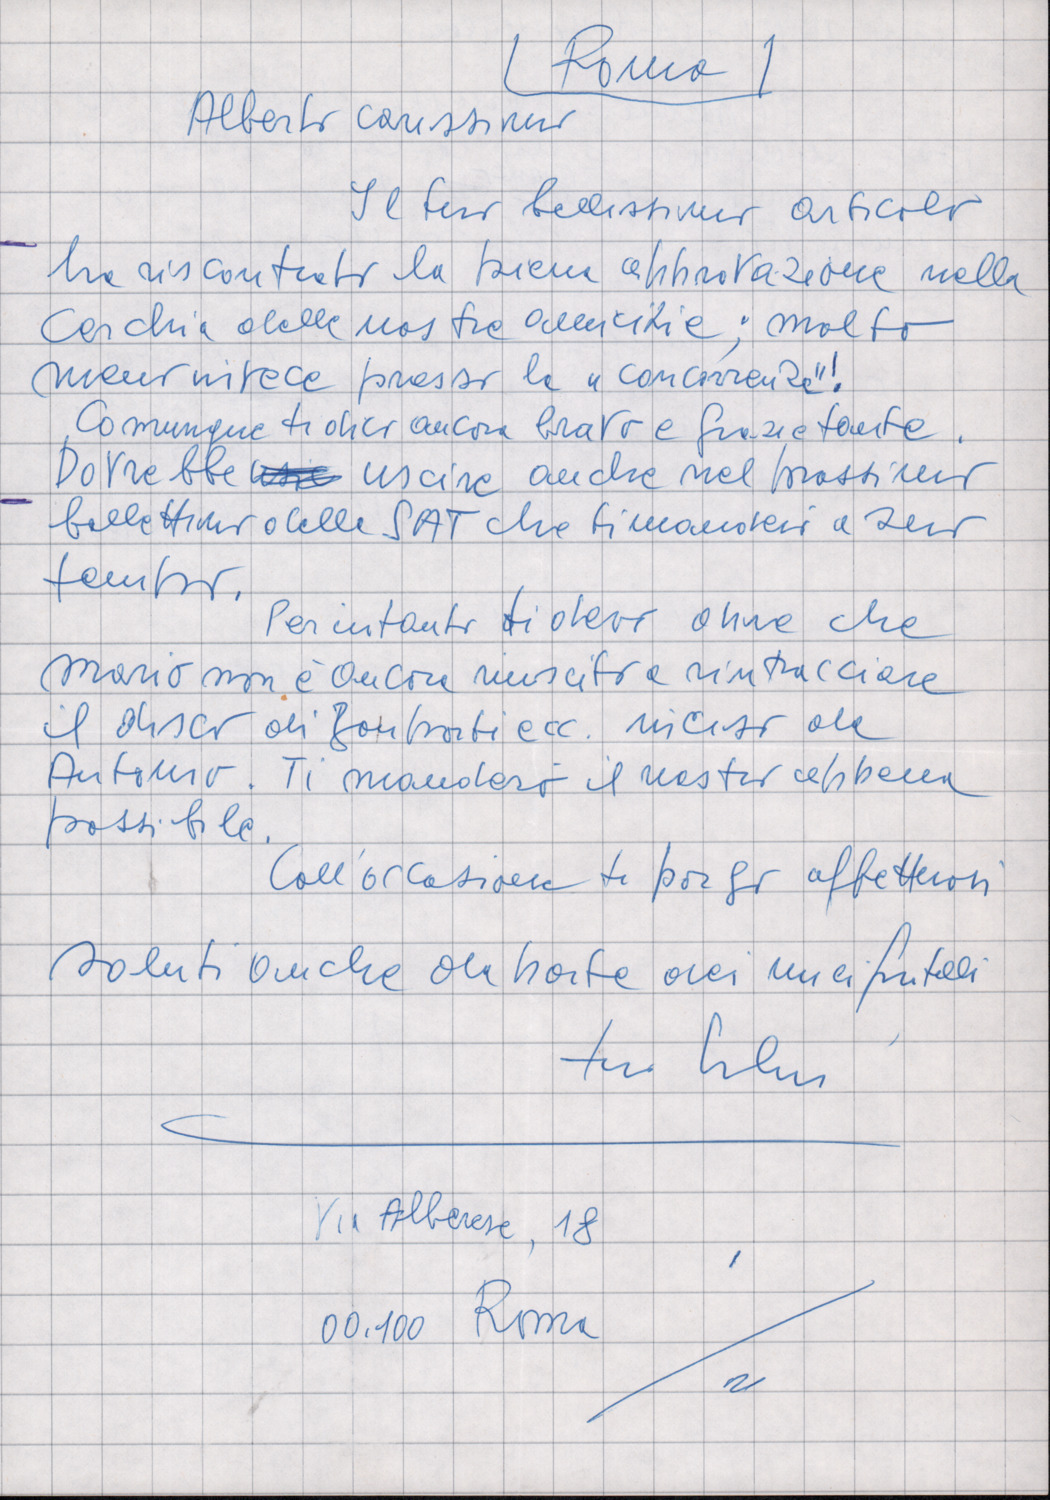 Roma
Alberto carissimo
Il tuo bellissimo articolo
ha riscontrato la piena approvazione nella
Cerchia delle nostre amicizie; molto
meno invece presso la "concorrenza"!
Comunque ti dico ancora bravo e grazie tante.
Dovrebbe uscire anche nel prossimo
bollettino della SAT che ti manderò a suo
tempo.
Per intanto ti devo dire che
Mario non è ancora riuscito a rintracciare
il disco di ecc. inciso da
Antonio. Ti manderò il nastro appena
possibile.
Coll'occasione ti porgo affettuosi
saluti anche da parte dei miei fratelli
tuo
Via Alberese, 18
00.100 Roma